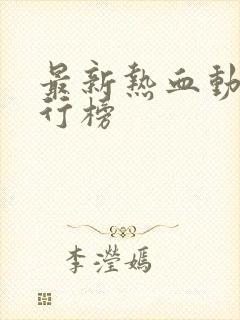 最新熱血動
行榜
李瀅嫣